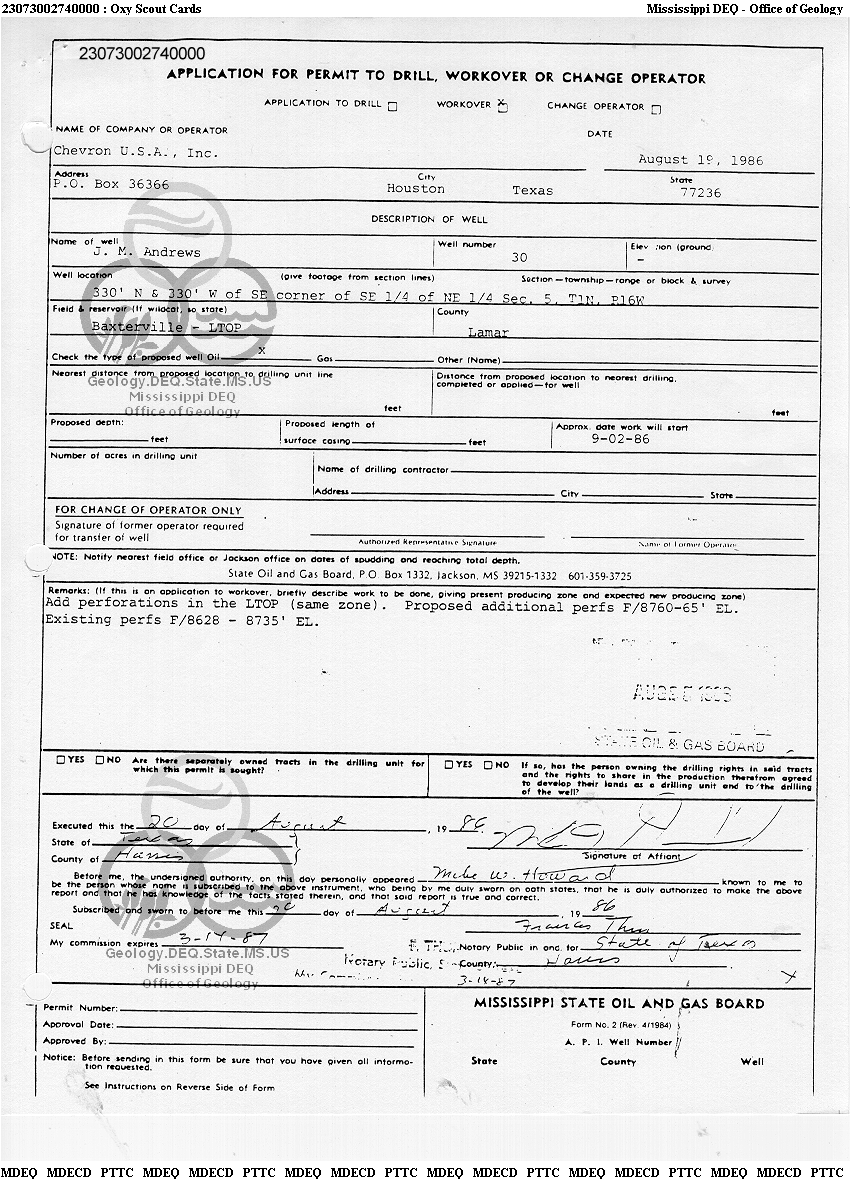 23073002740000 : Oxy Scout Cards Mississippi DEQ - Office of Geology
23073002740000
APPLICATION FOR PERMIT TO DRILL, WORKOVER OR CHANGE OPERATOR
APPLICATION TO DRILL ☐ WORKOVER X☐ CHANGE OPERATOR ☐
NAME OF COMPANY OR OPERATOR DATE
Chevron U.S.A., Inc. August 19, 1986
Address City State
P.O. Box 36366 Houston Texas 77236
DESCRIPTION OF WELL
Name of well Well number Elev (ground
J. M. Andrews 30 –
Well location (give footage from section lines) Section—township—range or block & survey
330' N & 330' W of SE corner of SE 1/4 of NE 1/4 Sec. 5, T1N, R16W
Field & reservoir (If wildcat, so state) County
Baxterville - LTOP Lamar
Check the type of proposed well Oil X Gas Other (Name)
Nearest distance from proposed location to drilling unit line Distance from proposed location to nearest drilling,
completed or applied—for well
Geology.DEQ.State.MS.US
Mississippi DEQ
Office of Geology
feet feet
Proposed depth: Proposed length of Approx. date work will start
feet surface casing feet 9-02-86
Number of acres in drilling unit
Name of drilling contractor
Address City State
FOR CHANGE OF OPERATOR ONLY
Signature of former operator required
for transfer of well
Authorized Representative Signature Name of Former Operator
NOTE: Notify nearest field office or Jackson office on dates of spudding and reaching total depth.
State Oil and Gas Board, P.O. Box 1332, Jackson, MS 39215-1332 601-359-3725
Remarks: (If this is an application to workover, briefly describe work to be done, giving present producing zone and expected new producing zone)
Add perforations in the LTOP (same zone). Proposed additional perfs F/8760-65' EL.
Existing perfs F/8628 - 8735' EL.
STATE OIL & GAS BOARD
☐ YES ☐ NO Are there separately owned tracts in the drilling unit for
which this permit is sought?
☐ YES ☐ NO If so, has the person owning the drilling rights in said tracts
and the rights to share in the production therefrom agreed
to develop their lands as a drilling unit and to the drilling
of the well?
Executed this the 20 day of August, 1986
State of Texas
Signature of Affiant
County of Harris
Before me, the undersigned authority, on this day personally appeared Mike W. Howard known to me to
be the person whose name is subscribed to the above instrument, who being by me duly sworn on oath states, that he is duly authorized to make the above
report and that he has knowledge of the facts stated therein, and that said report is true and correct.
Subscribed and sworn to before me this 20 day of August, 1986
SEAL Frances
My commission expires 3-14-87 Notary Public in and for State of Texas
Geology.DEQ.State.MS.US
Notary Public, County: Harris
Mississippi DEQ
Office of Geology
3-14-87 X
Permit Number: MISSISSIPPI STATE OIL AND GAS BOARD
Approval Date: Form No. 2 (Rev. 4/1984)
Approved By: A. P. I. Well Number
Notice: Before sending in this form be sure that you have given all informa-
tion requested.
State County Well
See Instructions on Reverse Side of Form
MDEQ MDECD PTTC MDEQ MDECD PTTC MDEQ MDECD PTTC MDEQ MDECD PTTC MDEQ MDECD PTTC MDEQ MDECD PTTC